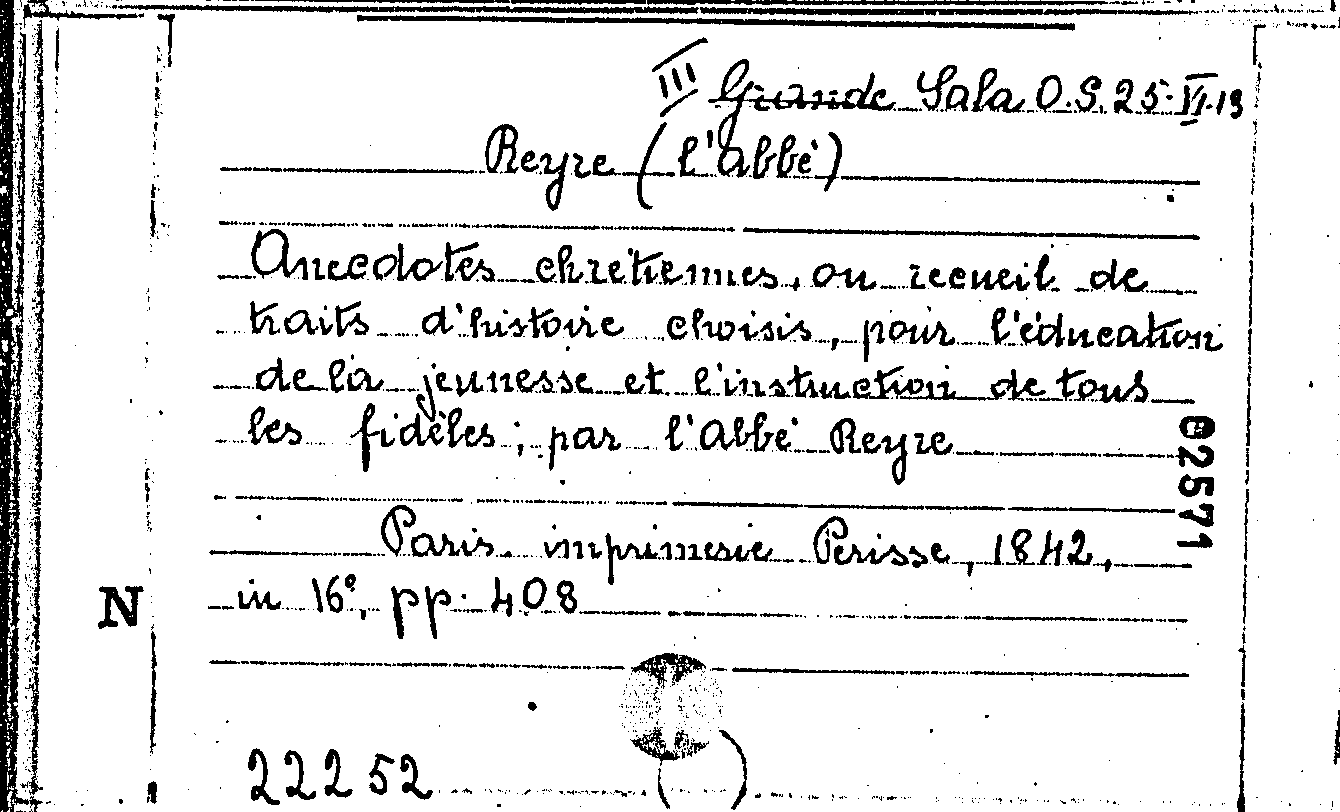 III Grande Sala O.S. 25.VI.19
Reyre (l'abbé)
Anecdotes chrétiennes, ou recueil de
traits d'histoire choisis, pour l'éducation
de la jeunesse et l'instruction de tous
les fidèles; par l'abbé Reyre
02571
Paris. imprimerie Perisse, 1842,
in 16°, pp. 408
N
22252